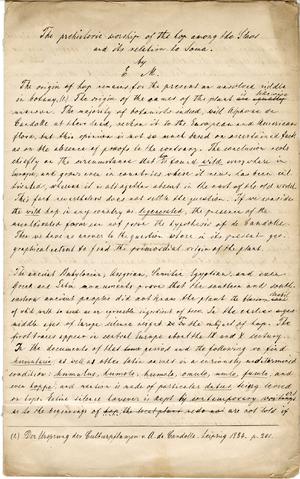 The prehistoric worship of the hop among the Slavs
and its relation to Soma.
by
E. M.
The origin of hop remains for the present an unsolved riddle
in botany.(1) The origin of the names of the plant is likewise
unknown. The majority of botanists indeed, with Alphonse de
Candolle at their head, reckon it to the European and American
flora, but this opinion is not so much based on ascertained facts,
as on the absence of proofs to the contrary. The conclusion rests
chiefly on the circumstance that is found wild everywhere in
Europe, and grows even in countries, where it never has been cul-
tivated, whereas it is altogether absent in the east of the old world.
This fact nevertheless does not settle the question. If we consider
the wild hop in any country as degenerated, the presence of the
uncultivated can not prove the hypothesis of de Candolle.
Thus we have no answer to the question, where in its present geo-
graphical extent to find the primordial origin of the plant.
The ancient Babylonian, Assyrian, Egyptian, and even
Greek and Latin monuments prove that the eastern and south-
eastern ancient peoples did not know the plant
of old with its use as an ingredient of beer. In the earlier ages
middle ages of Europe silence reigns on the subject of hop. The
first traces appear in central Europe about the and X century.
In the documents of this time and the following we find
humularia, as well as other latin names in a variously undetermined
condition: humulus, humolo, humelo, umulo, fumulo, and
even hoppe and mention is made of particular duties being
on hops. Latin silence however is kept by contemporary writings
as to the beginnings of are not told of
(1) Der Ursprung der Culturpflanzen v. A. de Candolle. Leipzig 1884. p.